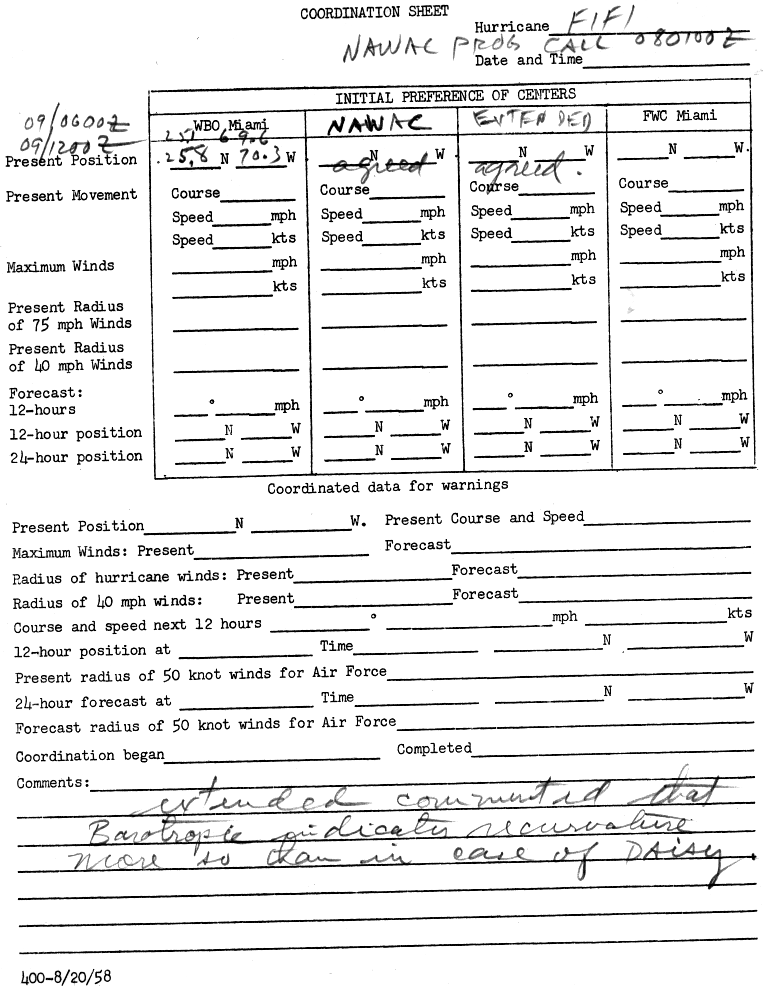 COORDINATION SHEET
Hurricane FIFI
NAWAC PROG CALL 080100Z
Date and Time
INITIAL PREFERENCE OF CENTERS
09/0600Z
09/1200Z
WBO Miami NAWAC EXTENDED FWC Miami
25.1 69.6
Present Position 25.8 N 70.3 W N W N W N W.
agreed agreed.
Present Movement Course Course Course Course
Speed mph Speed mph Speed mph Speed mph
Speed kts Speed kts Speed kts Speed kts
Maximum Winds mph mph mph mph
kts kts kts kts
Present Radius
of 75 mph Winds
Present Radius
of 40 mph Winds
Forecast:
12-hours ° mph ° mph ° mph ° mph
12-hour position N W N W N W N W
24-hour position N W N W N W N W
Coordinated data for warnings
Present Position N W. Present Course and Speed
Maximum Winds: Present Forecast
Radius of hurricane winds: Present Forecast
Radius of 40 mph winds: Present Forecast
Course and speed next 12 hours ° mph kts
12-hour position at Time N W
Present radius of 50 knot winds for Air Force
24-hour forecast at Time N W
Forecast radius of 50 knot winds for Air Force
Coordination began Completed
Comments:
extended commented that
Barotropic indicates recurvature
more so than in case of DAISY.
400-8/20/58